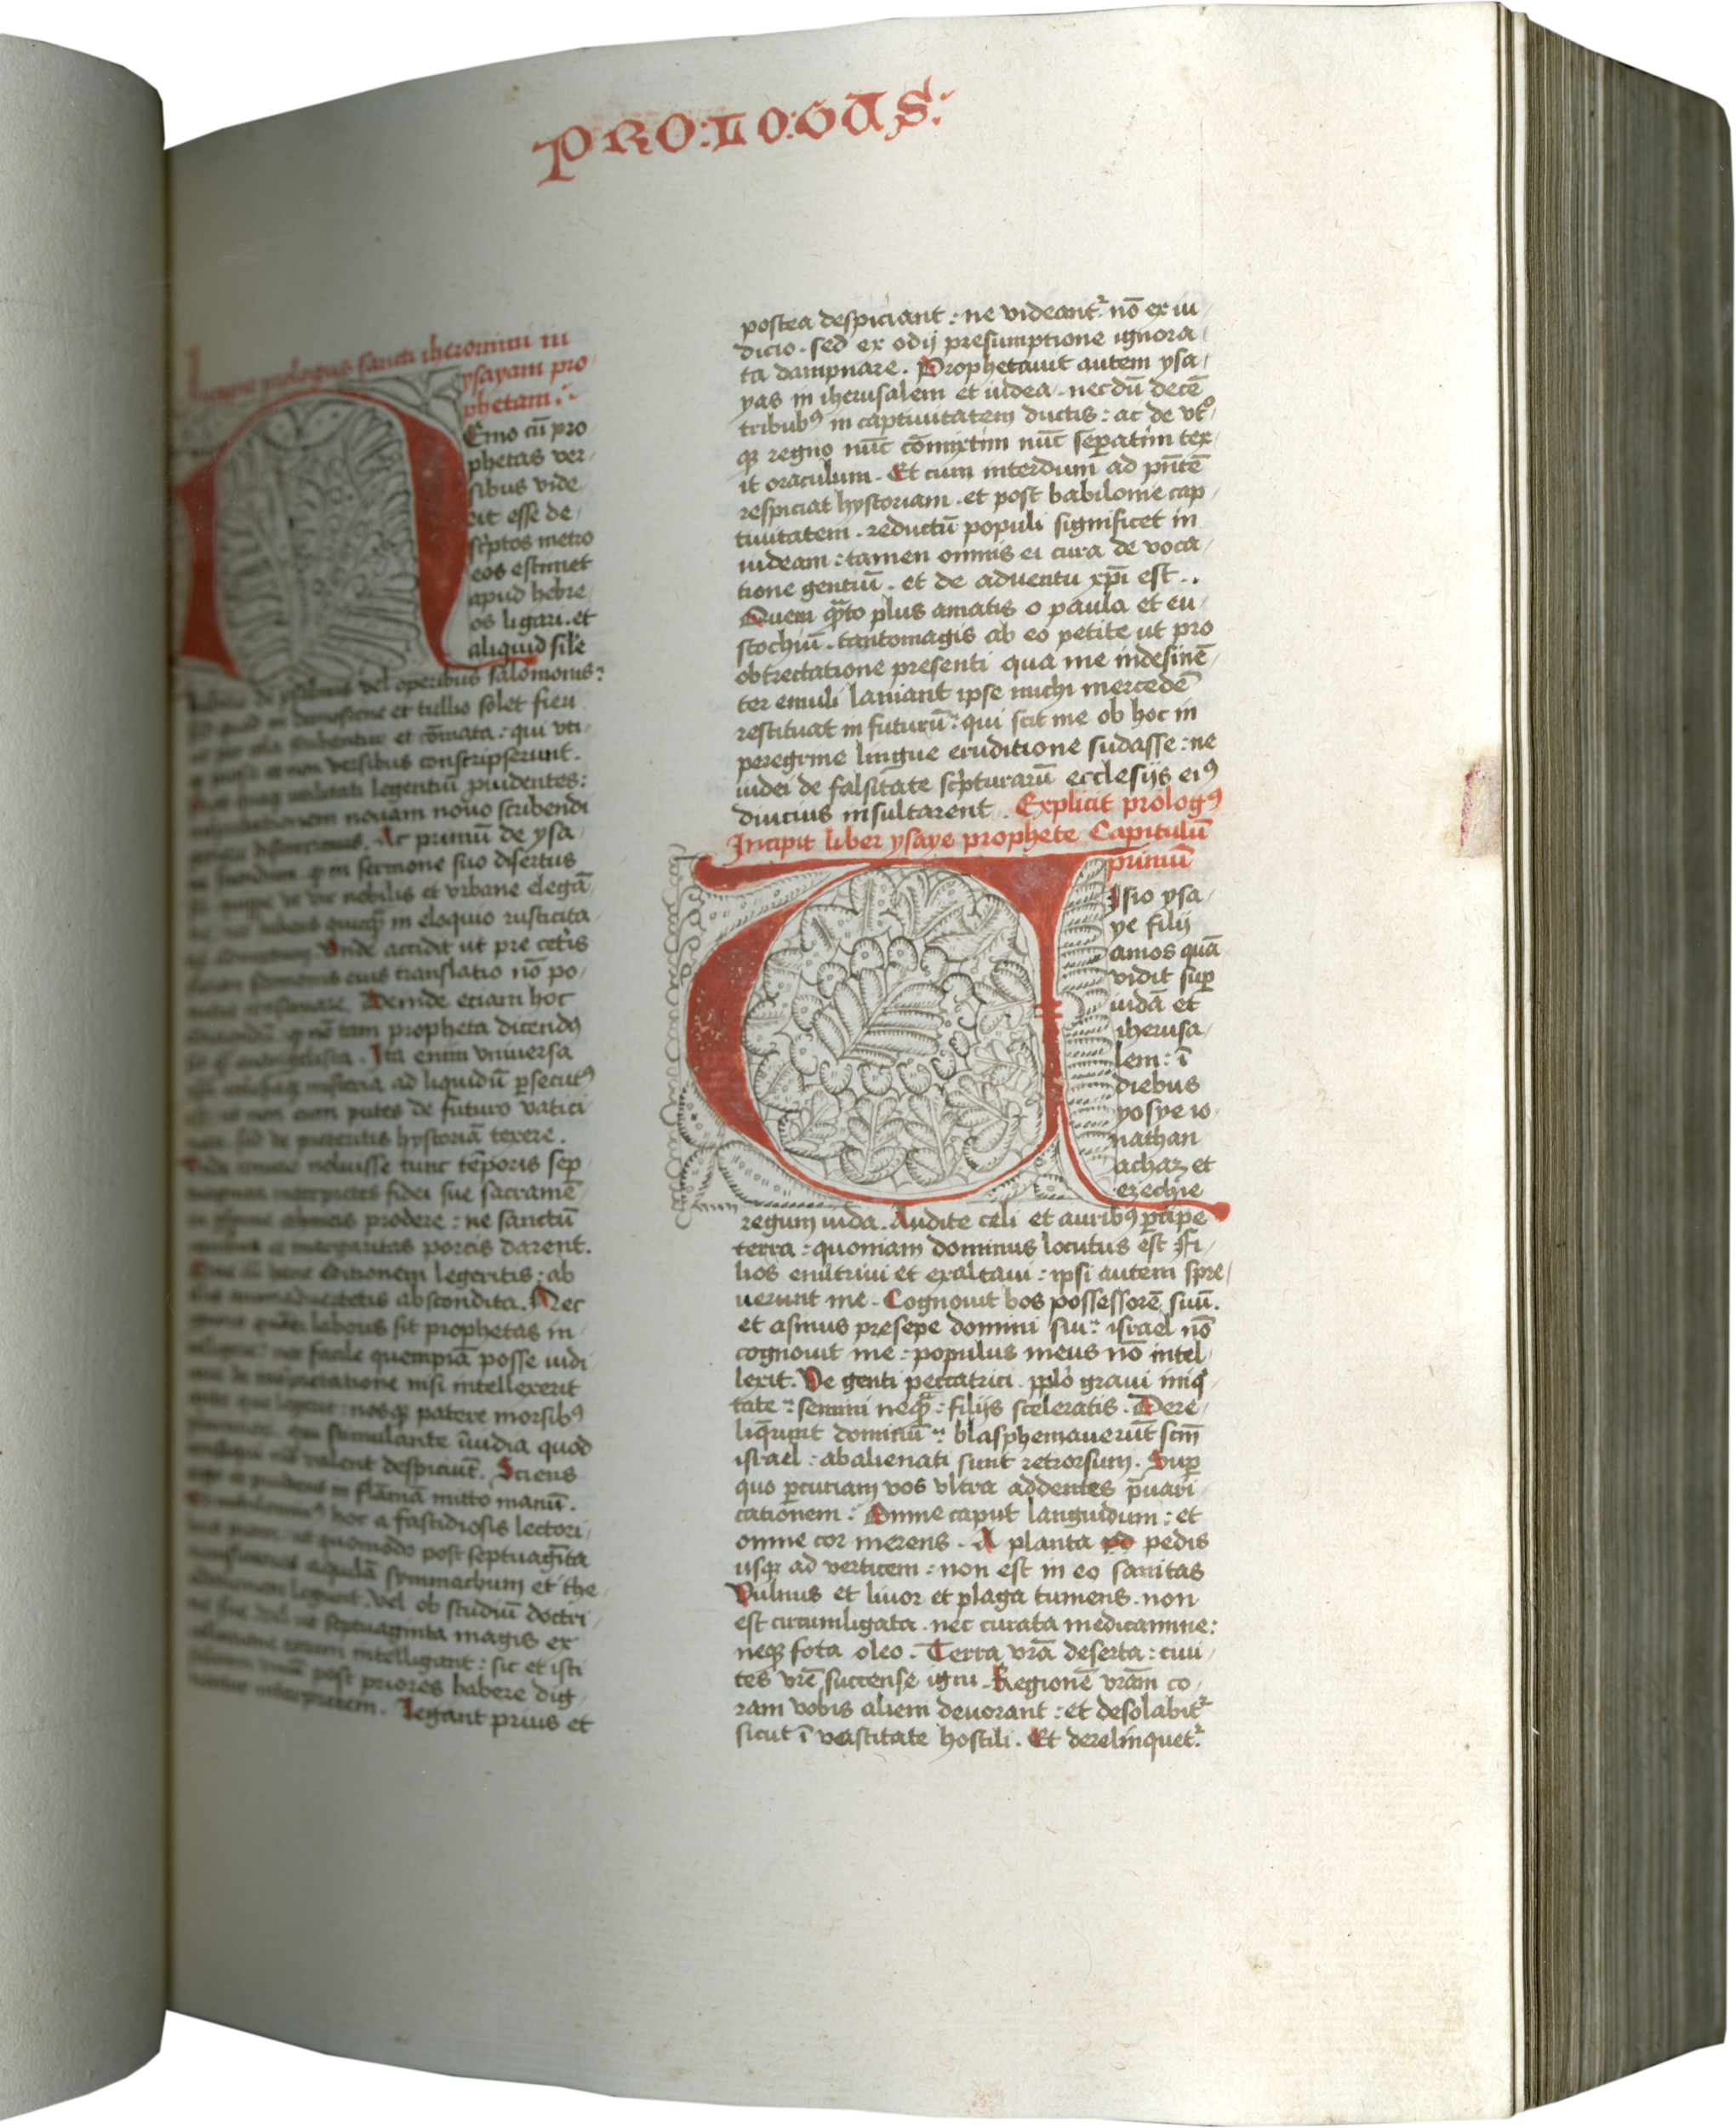 PRO:LO:GUS:
prologus sancti iheronimi in
ysayam pro
phetam
Emo cū pro
phetas ver
sibus vide
rit esse de
scͥptos metro
eos estimet
apud hebre
os ligari . et
aliquid sile
psalmis vel operibus salomonis:
et tullio solet fieri
et cōmata : qui uti
non versibus conscripserunt .
utilitati legentiū ꝓuidentes:
nouam nouo scribendi
Ac primū de ysa
sermone suo disertus
nobilis et vrbane elegā
in eloquio rusticita
Vnde accidit ut pre ceteris
translatio nō po
Deinde eciam hoc
tam propheta dicendꝰ
Ita enim vniuersa
misteria ad liquidū ꝑsecutꝰ
non eum putes de futuro vatici
sed de preteritis hystoriā texere .
noluisse tunc tēporis sep
interpretes fidei sue sacramē
prodere : ne sanctū
margaritas porcis darent .
hanc editionem legeritis : ab
abscondita . Nec
laboris sit prophetas in
nec facile quempiā posse iudi
nisi intellexerit
nosqꝫ patere morsibꝰ
stimulante īuidia quod
valent despiciūt . Sciens
in flāmā mitto manū .
hoc a fastidiosis lectori
ut quomodo post septuagīta
aquilā symmachum et the
legunt vel ob studiū doctri
septuaginta magis ex
intelligant : sic et isti
post priores habere dig
interpretem . Legant prius et
postea despiciant : ne videantᷣ nō ex iu
dicio . sed ex odij presumptione ignora
ta dampnare . Prophetauit autem ysa
yas in iherusalem et iudea . necdū decē
tribubꝰ in captiuitatem ductis : ac de vtͦ
qꝫ regno nūc cōmixtim nūc seꝑatim tex
it oraculum . Et cum interdum ad pn̄tē
respiciat hystoriam . et post babilonie cap
tiuitatem . reductū populi significet in
iudeam : tamen omnis ei cura de voca
tione gentiū . et de aduentu xp̄i est . .
Quem qͣto plus amatis o paula et eu
stochiū . tantomagis ab eo petite ut pro
obtrectatione presenti qua me indesinē
ter emuli laniant ipse michi mercedē
restituat in futurū : qui scit me ob hoc in
peregrine lingue eruditione sudasse : ne
iudei de falsitate scͥpturarū ecclesijs eiꝰ
diucius insultarent . Explicit prologꝰ
Incipit liber ysaye prophete Capitulū
primū
VIsio ysa
ye filij
amos quā
vidit suꝑ
iudā et
iherusa
lem : ī
diebus
yosye io
nathan
achaz et
ezechie
regum iuda . Audite celi et auribꝰ ꝑcipe
terra : quoniam dominus locutus est Fi
lios enutriui et exaltaui : ipsi autem spre
uerunt me . Cognouit bos possessorē suū .
et asinus presepe domini sui : israel nō
cognouit me : populus meus nō intel
lexit . Ve genti peccatrici . pplo graui iniq̄
tate : semini neqͣ : filijs sceleratis . Dere
liq̄runt dominū : blasphemauerūt scm̄
israel : abalienati sunt retrorsum . Suꝑ
quo ꝑcutiam vos vltra addentes p̄uari
cationem : Omne caput languidum : et
omne cor merens . A planta pedis
usqꝫ ad verticem : non est in eo sanitas
Vulnus et liuor et plaga tumens . non
est circumligata . nec curata medicamine :
neqꝫ fota oleo . Terra vrā deserta : ciui
tes vrē succense igni . Regionē vrām co
ram vobis alieni deuorant : et desolabitᷣ
sicut ī vastitate hostili . Et derelinquetᷣ